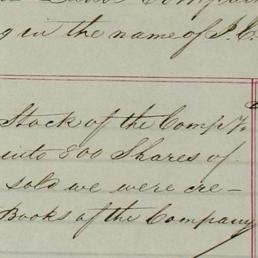 g in the name of J. C.
Stock of the Compy.
into 800 Shares of
sold we were cre-
Books of the Company